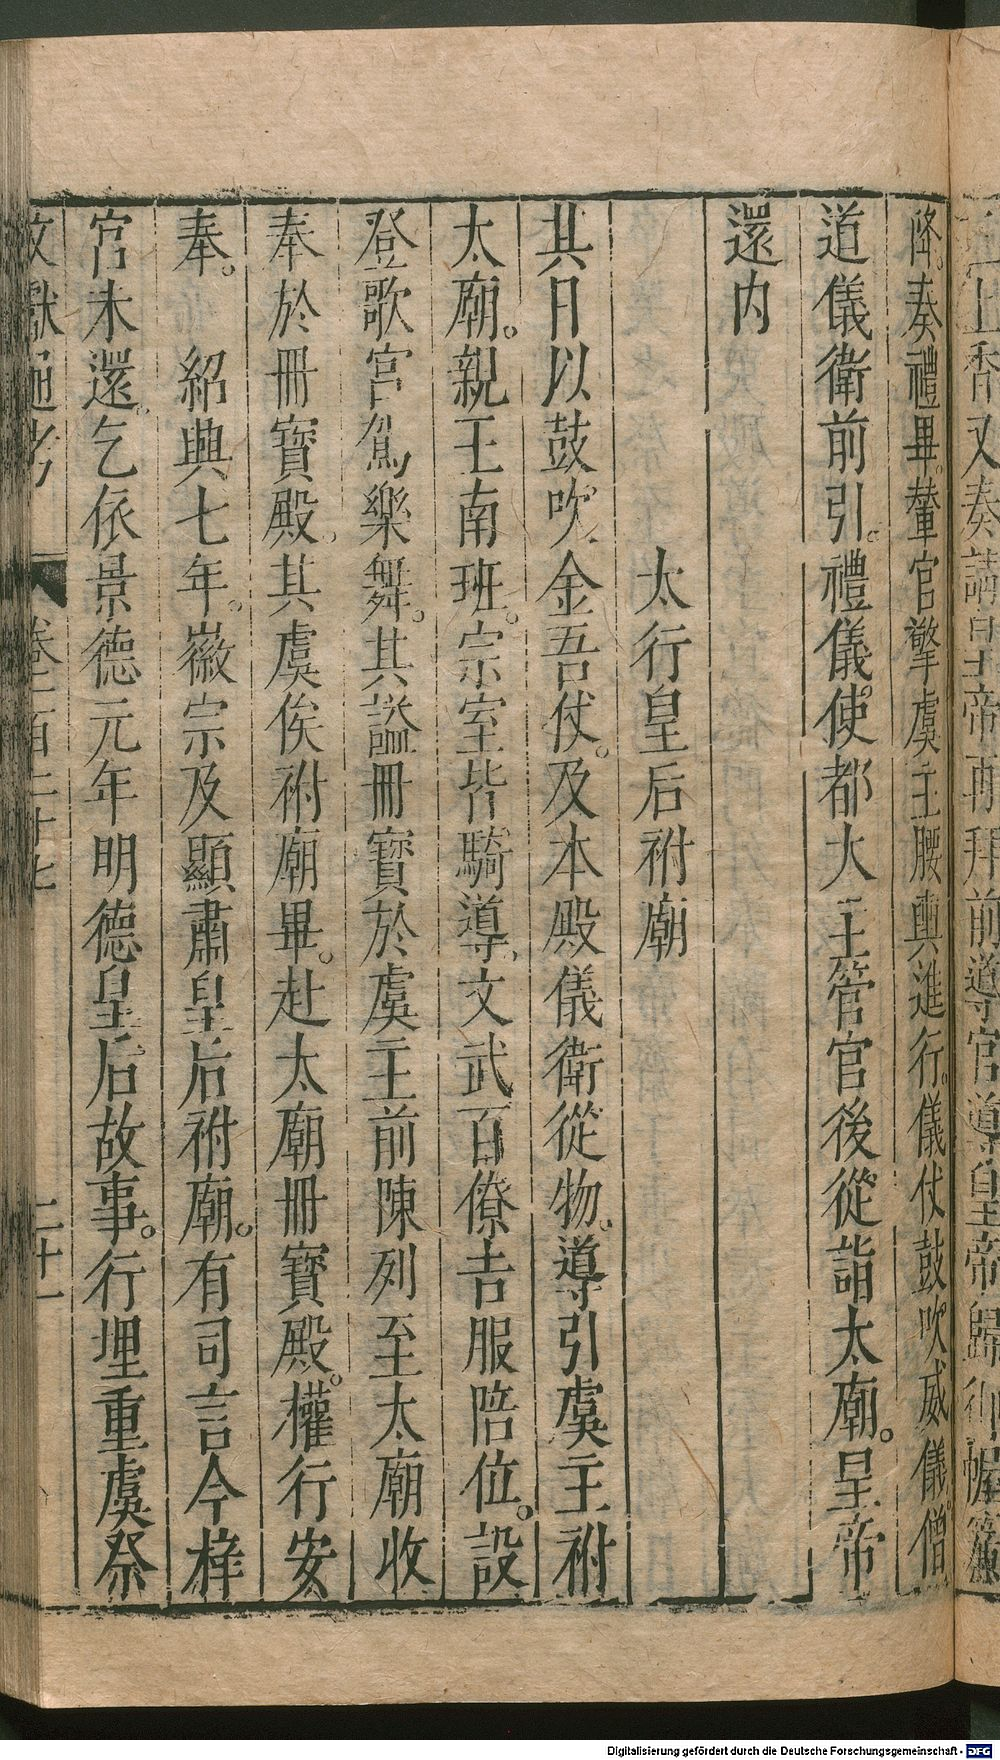 上香又奏請皇帝再拜前導官導皇帝歸御幄簾
降。奏禮畢。輦官擎虞主腰輿進行。儀仗鼓吹威儀僧
道儀衛前引。禮儀使都大主管官後從詣太廟。皇帝
還内
太行皇后祔廟
其日以鼓吹金吾仗。及本殿儀衛從物。導引虞主祔
太廟。親王南班。宗室皆騎導文武百僚吉服陪位。設
登歌宮駕樂舞。其謚冊寶於虞主前陳列至太廟收
奉於冊寶殿。其虞俟祔廟畢。赴太廟冊寶殿。權行安
奉。紹興七年。徽宗及顯肅皇后祔廟。有司言今梓
宮未還。乞依景德元年明德皇后故事。行埋重虞祭
文獻通考 卷一百二十七 二十一
Digitalisierung gefördert durch die Deutsche Forschungsgemeinschaft - DFG